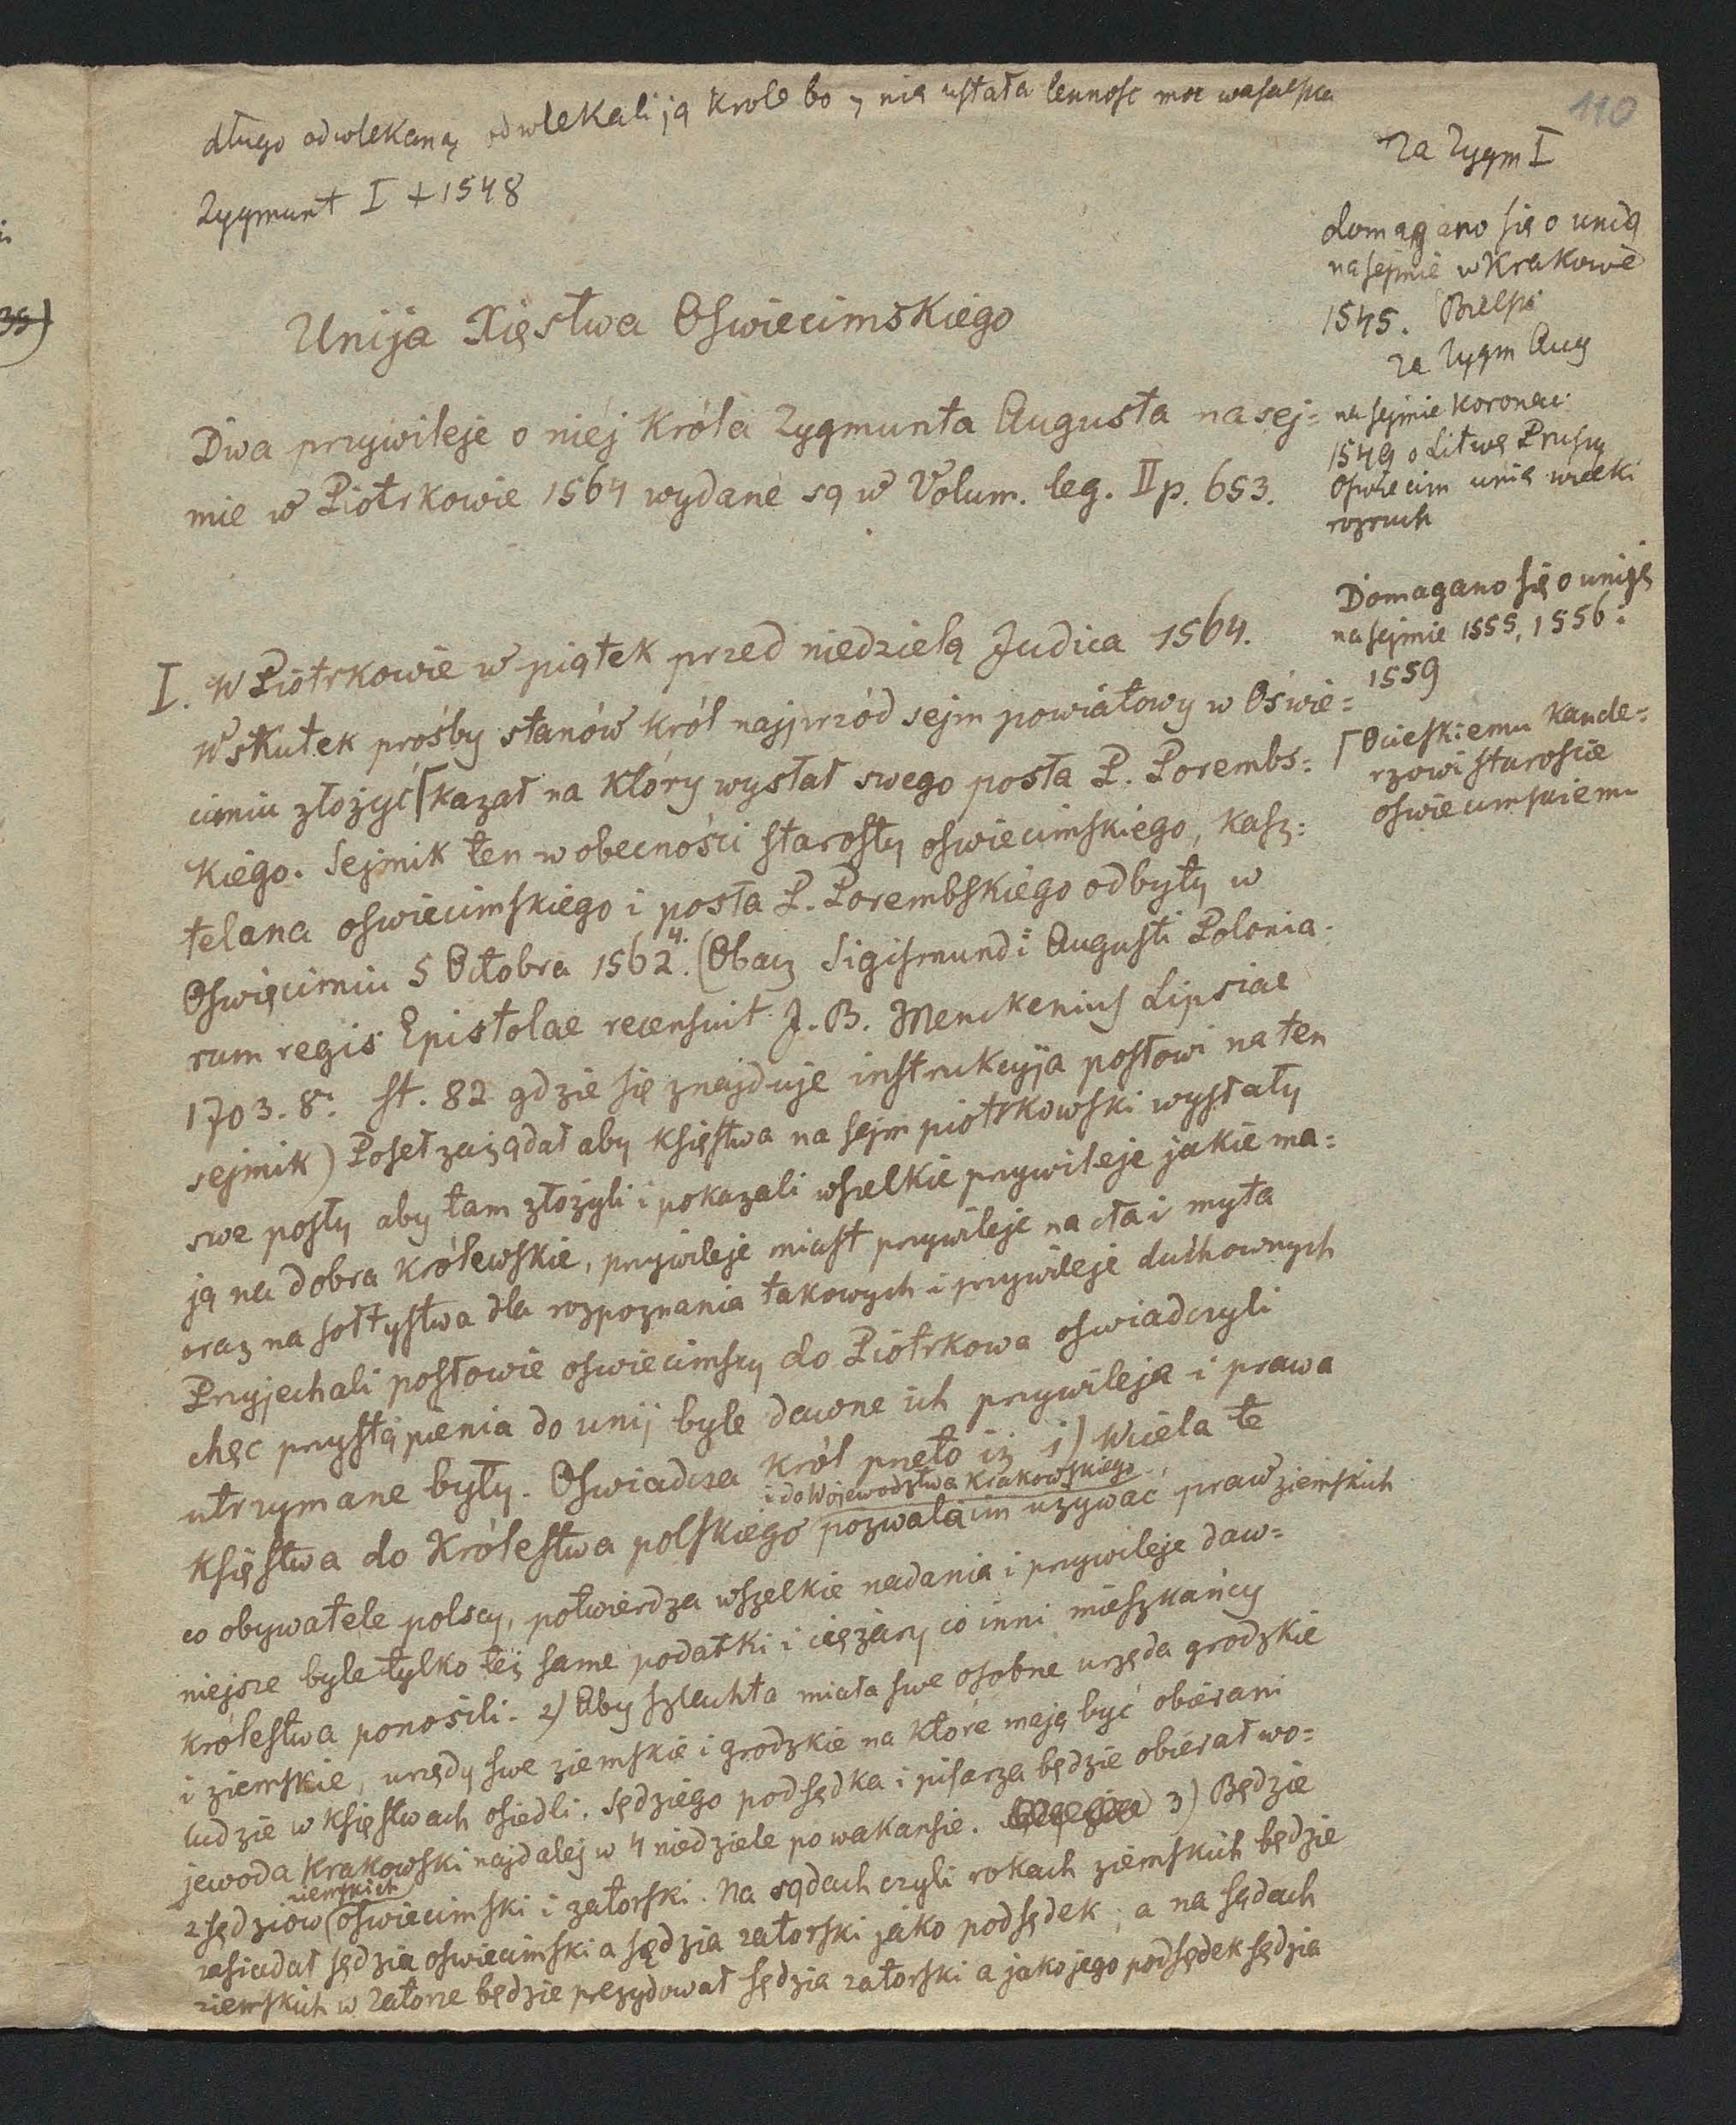 110
długo odwlekaną odwlekali ją Krole bo z nią ustała lennosc moc wasalska
Zygmunt I + 1548
Za Zygm I
domagano się o unią
na sejmie w Krakowie
1545. Bielski
Za Zygm Aug
na sejmie koronac.
1549 o Litwę Prusy
Oswiecim unia wielki
rozruch
Domagano się o uniję
na sejmie 1555, 1556 i
1559
⌈ Ocieskiemu kancle=
rzowi staroscie
oswiecimskiemu
Unija Xięstwa Oswiecimskiego
Dwa przywileje o niéj Króla Zygmunta Augusta na sej=
mie w Piotrkowie 1564 wydane są w Volum. leg. II p. 653.
I. W Piotrkowie w piątek przed niedzielą Judica 1564.
Wskutek prośby stanów król najprzód sejm powiatowy w Oświe=
cimiu złożyć ⌈ kazał na który wysłał swego posła P. Porembs=
kiego. Sejmik ten w obecności starosty oswiecimskiego, kasz=
telana oswiecimskiego i posła P. Porembskiego odbyty w
Oswięcimiu 5 Octobra 1562 4. (Obacz Sigismundi Augusti Polonia
rum regis Epistolae recensuit J. B. Menckenius Lipsiae
1703. 8. st. 82 gdzie się znajduje instrukcyja posłowi na ten
sejmik) Poseł zażądał aby księstwa na sejm piotrkowski wysłały
swe posły aby tam złożyli i pokazali wszelkie przywileje jakie ma=
ją na dobra królewskie, przywileje miast przywileje na cła i myta
oraz na sołtystwa dla rozpoznania takowych i przywileje duchownych
Przyjechali posłowie oswiecimscy do Piotrkowa oswiadczyli
chęc przystąpienia do unij byle dawne ich przywileja i prawa
utrzymane były. Oswiadcza król przeto iż 1) Wciela te
i do Wojewodztwa Krakowskiego
Księstwa do Królestwa polskiego pozwala im uzywać praw ziemskich
co obywatele polscy, potwierdza wszelkie nadania i przywileje daw=
niejsze byle tylko też same podatki i ciężary co inni mieszkańcy
królestwa ponosili. 2) Aby szlachta miała swe osobne urzęda grodzkie
i ziemskie, urzędy swe ziemskie i grodzkie na które mają być obierani
ludzie w księstwach osiedli. Sędziego podsędka i pisarza będzie obierał wo=
jewoda Krakowski najdalej w 4 niedziele po wakansie. 3) Będzie
ziemskich
2 sędziow oswiecimski i zatorski. Na sądach czyli rokach ziemskich będzie
zasiadał sędzia oswiecimski a sędzia zatorski jako podsędek; a na sądach
ziemskich w Zatorze będzie prezydował sędzia zatorski a jako jego podsędek sędzia